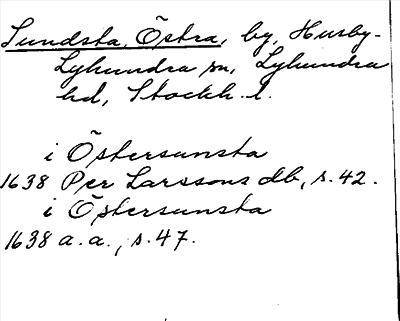 Sundsta, Östra, by, Husby-
Lyhundra sn, Lyhundra
hd, Stockh. l.
i Östersunsta
1638 Per Larssons db, s. 42.
i Östersunsta
1638 a. a., s. 47.